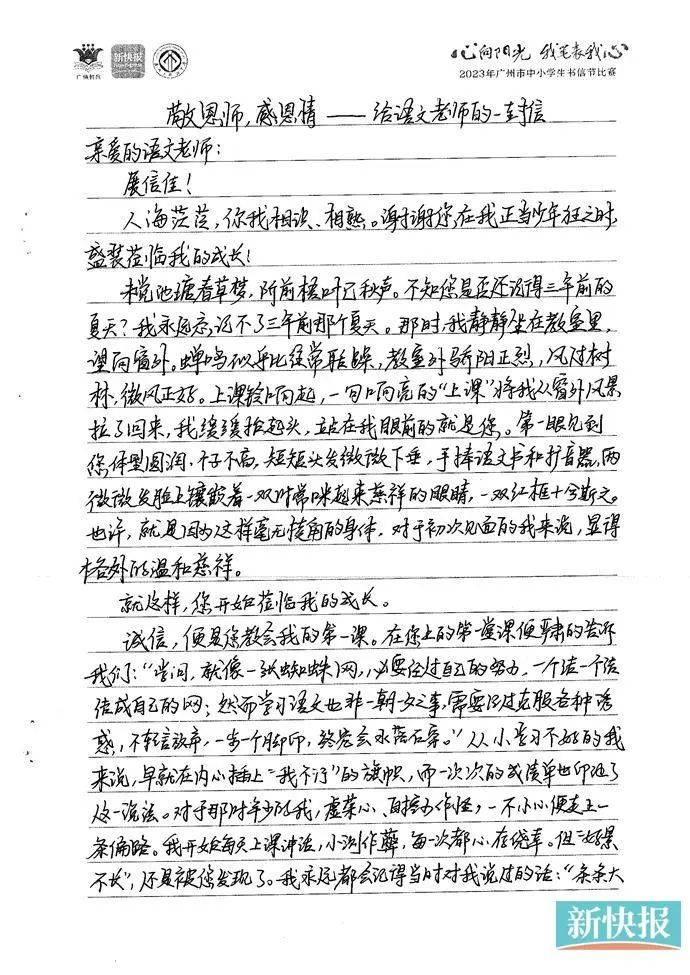 广州教育
新快报
心向阳光 我笔表我心
2023年广州市中小学生书信节比赛
敬恩师，感恩情——给语文老师的一封信
亲爱的语文老师：
展信佳！
人海茫茫，你我相识、相熟。谢谢您，在我正当少年狂之时，
盛装莅临我的成长！
未觉池塘春草梦，阶前梧叶已秋声。不知您是否还记得三年前的
夏天？我永远忘记不了三年前那个夏天。那时，我静静坐在教室里，
望向窗外。蝉鸣似乎比经常聒噪，教室外骄阳正烈，风过树
林，微风正好。上课铃响起，一句响亮的“上课”将我从窗外风景
拉了回来，我缓缓抬起头，站在我眼前的就是您。第一眼见到
您体型圆润，个子不高，短短头发微微下垂，手捧语文书和扩音器，两
微微发脸上镶嵌着一双时常眯起来慈祥的眼睛，一双红框十分斯文。
也许，就是因为这样毫无棱角的身体，对于初次见面的我来说，显得
格外的温和慈祥。
就这样，您开始莅临我的成长。
诚信，便是您教会我的第一课。在您上的第一堂课便严肃的告诉
我们：“学问，就像一张蜘蛛网，必要经过自己的努力，一个结一个结
结成自己的网；然而学习语文也非一朝一夕之事，需要经过克服各种诱
惑，不轻言放弃，一步一个脚印，终究会水落石穿。”从小学习不好的我
来说，早就在内心插上“我不行”的旗帜，而一次次的成绩单也印证了
这一说法。对于那时年少的我，虚荣心、自控力作怪，一不小心便走上一
条偏路。我开始每天上课讲话，小测作弊，每一次都心存侥幸。但“好景
不长”，还是被您发现了。我永远都会记得当时对我说过的话：“条条大
新快报